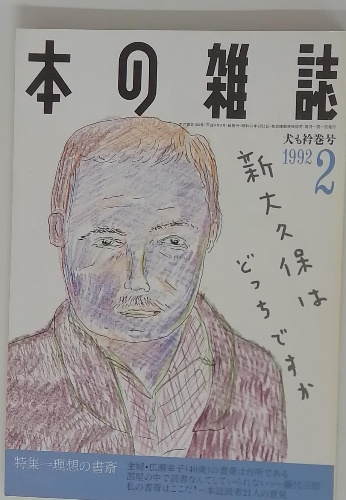 本の雑誌
犬も衿巻号
1992 2
新大久保は
どっちですか
特集=理想の書斎
主婦・広瀬幸子(46歳)の書斎は台所である
部屋の中で読書なんてしていられない
私の書斎はここだ!
本誌読者21人の意見